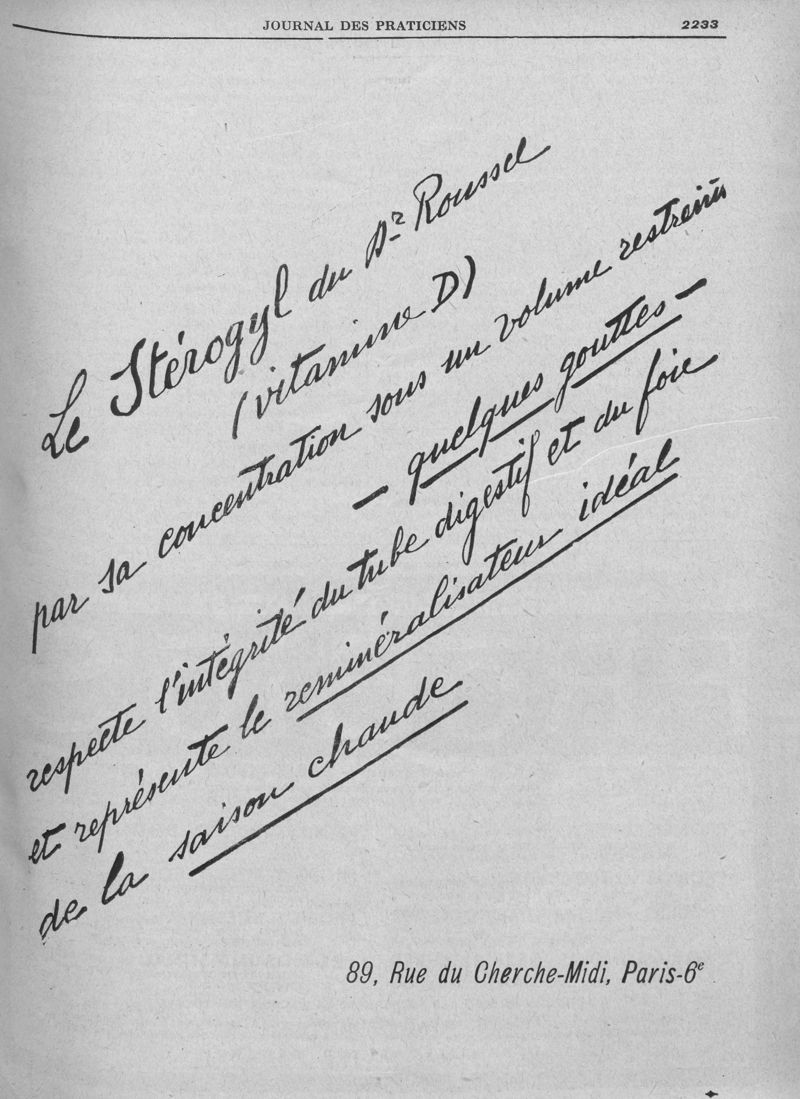 JOURNAL DES PRATICIENS 2233
Le Stérogyl du Dr Roussel
(vitamine D)
par sa concentration sous un volume restreint
— quelques gouttes —
respecte l'intégrité du tube digestif et du foie
et représente le reminéralisateur idéal
de la saison chaude
89, Rue du Cherche-Midi, Paris-6e